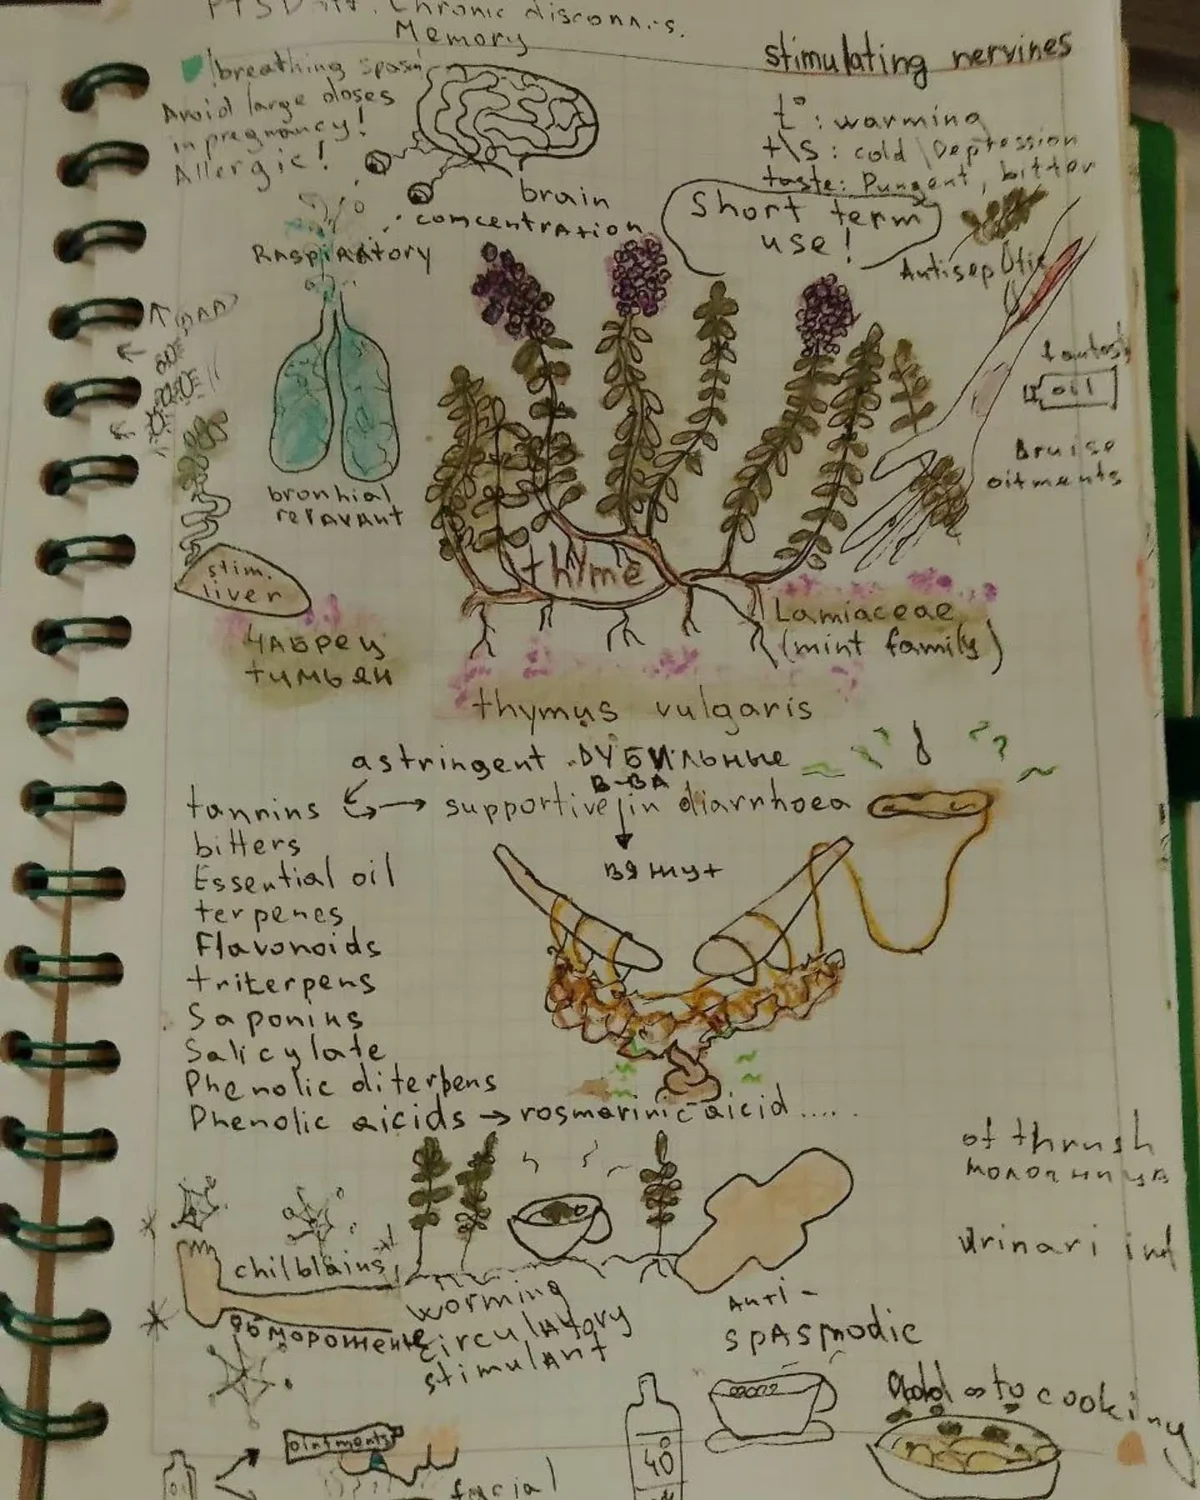 Chronic
Memory
breathing spasm
Avoid large doses
in pregnancy!
Allergic!
stimulating nervines
t° : warming
t\S : cold \ Depression
taste: Pungent, bitter
Short term
use!
brain
comcentration
Raspiratory
Antiseptic
oil
Bruise
oitments
bronhial
relavant
stim.
liver
thyme
Lamiaceae
(mint family)
чабрец
тимьян
thymus vulgaris
astringent дубильные
в-ва
tannins → supportive in diarrhoea
вяжут
bitters
Essential oil
terpenes
Flavonoids
triterpens
Saponins
Salicylate
Phenolic diterpens
Phenolic aicids → rosmarinic aicid .....
of thrush
urinari inf
chilblains
обморожение
worming
circulatory
stimulant
Anti-
spasmodic
Add to cooking
ointments
40°
facial
oil